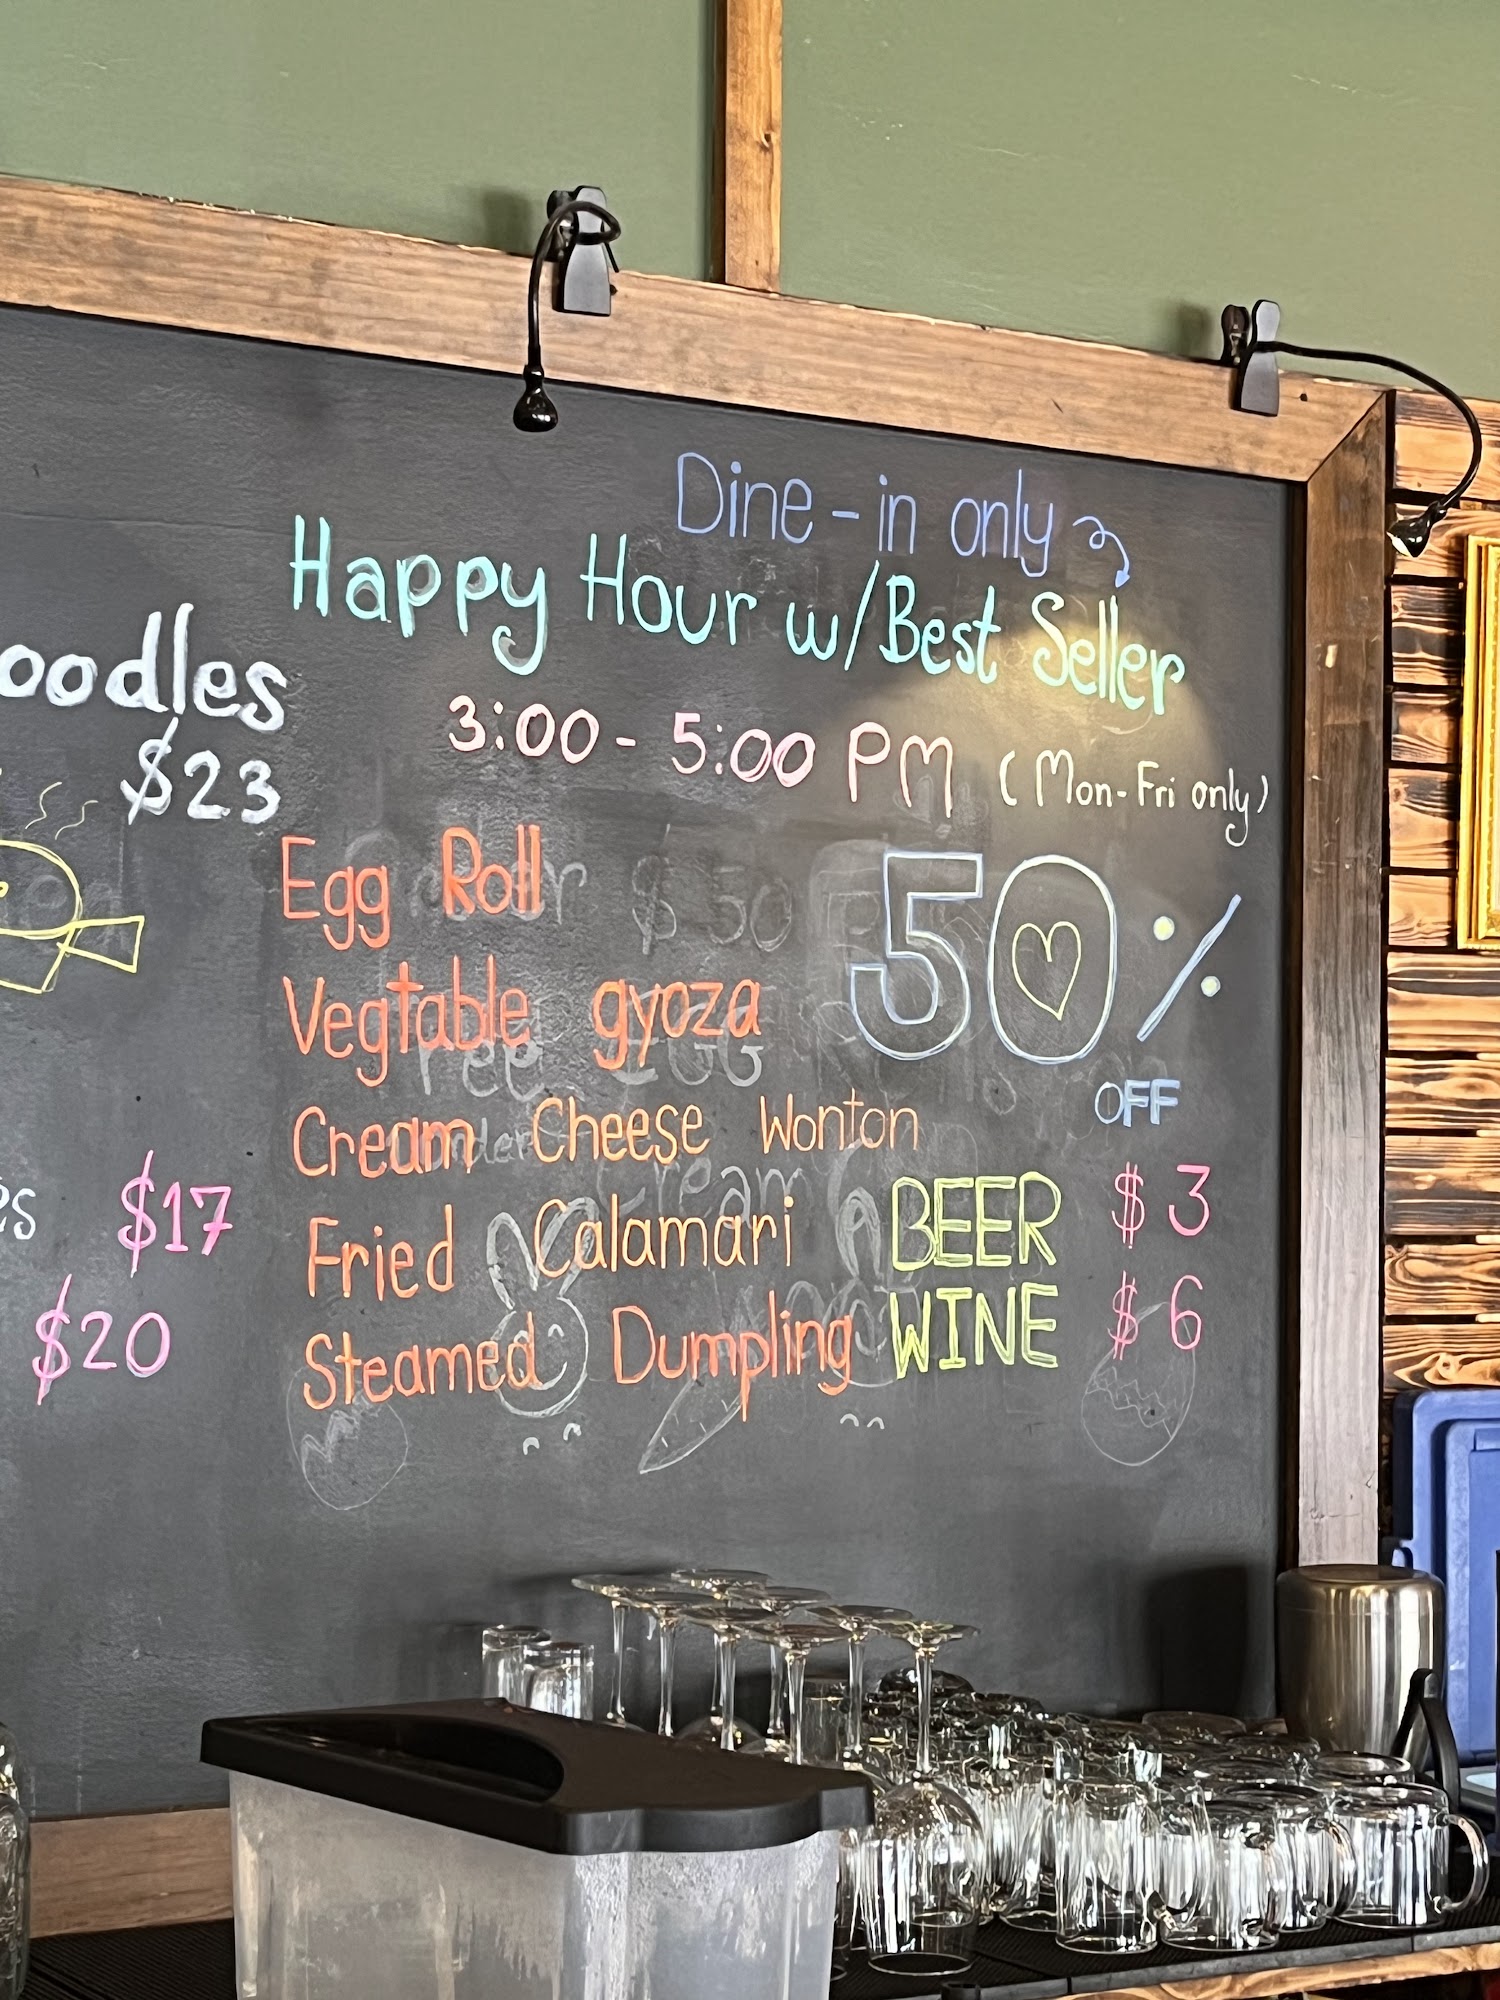 Dine-in only
Happy Hour w/Best Seller
3:00 - 5:00 PM (Mon-Fri only)
oodles
$23
Egg Roll
50%
OFF
Vegtable gyoza
Cream Cheese Wonton
Fried Calamari
Steamed Dumpling
BEER $3
WINE $6
es $17
$20